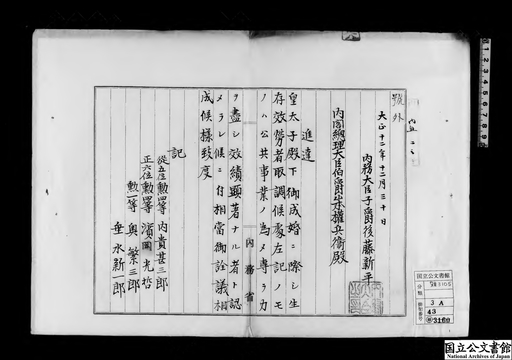 號外
大正十二年十二月三十日
內務大臣子爵後藤新平
內閣總理大臣伯爵山本權兵衞殿
進達
皇太子殿下御成婚ニ際シ生
存效勞者取調候處左記ノモ
ノハ公共事業ノ爲メ專ラ力
ヲ盡シ效績顯著ナル者ト認
メラレ候ニ付相當御詮議相
成候樣致度
記
從五位勳四等 內貴甚三郎
正六位勳四等 濱岡光哲
勳一等 奧繁三郎
垂水新一郎
內務省
國立公文書館
分類
3A
43
3160
国立公文書館
National Archives of Japan